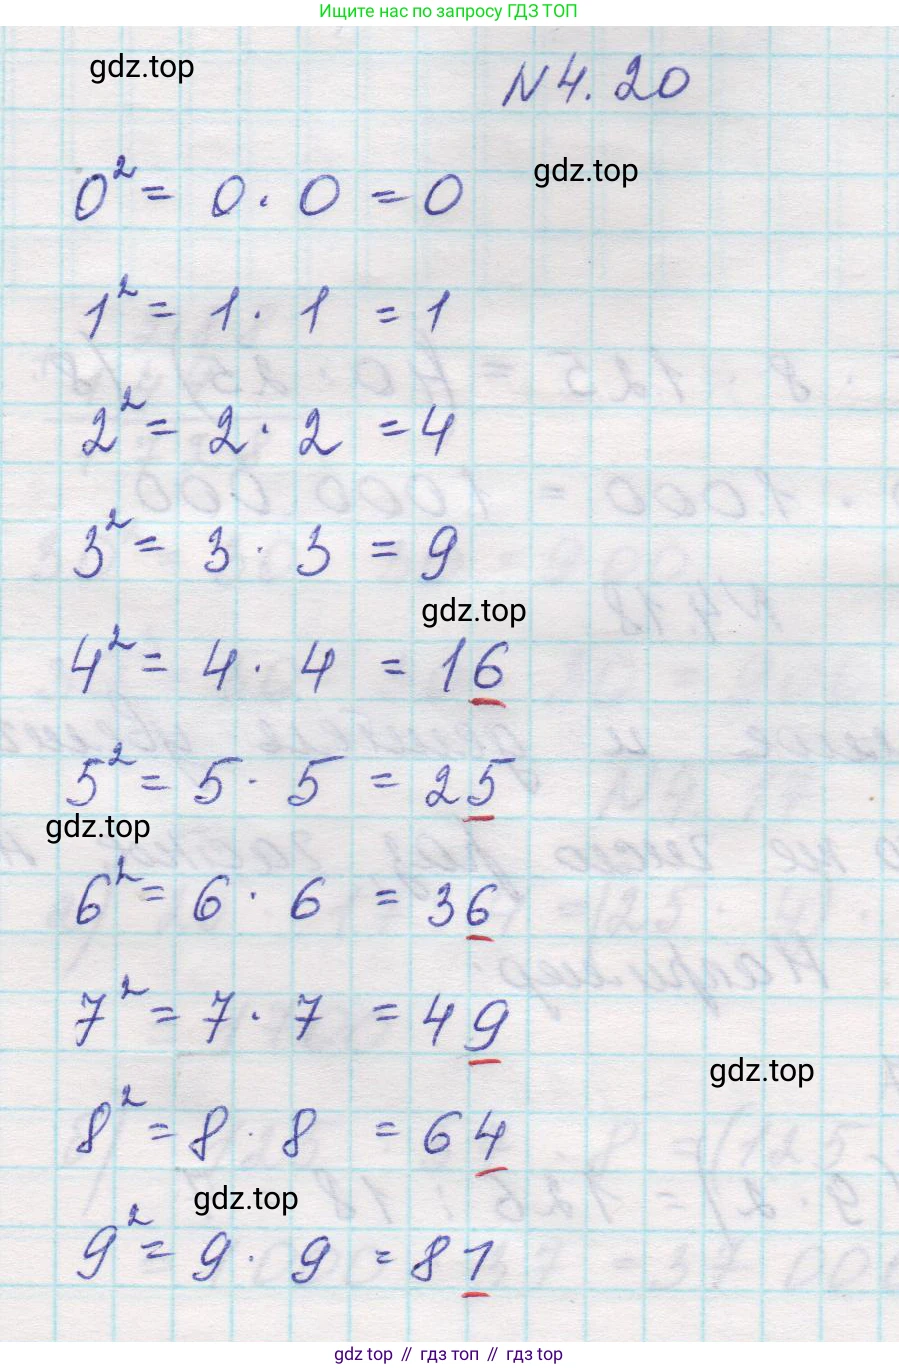 Ищите нас по запросу ГДЗ ТОП
gdz.top
N 4.20
gdz.top
0² = 0 · 0 = 0
1² = 1 · 1 = 1
2² = 2 · 2 = 4
3² = 3 · 3 = 9
gdz.top
4² = 4 · 4 = 16
5² = 5 · 5 = 25
gdz.top
6² = 6 · 6 = 36
7² = 7 · 7 = 49
gdz.top
8² = 8 · 8 = 64
gdz.top
9² = 9 · 9 = 81
gdz top // гдз топ // gdz top